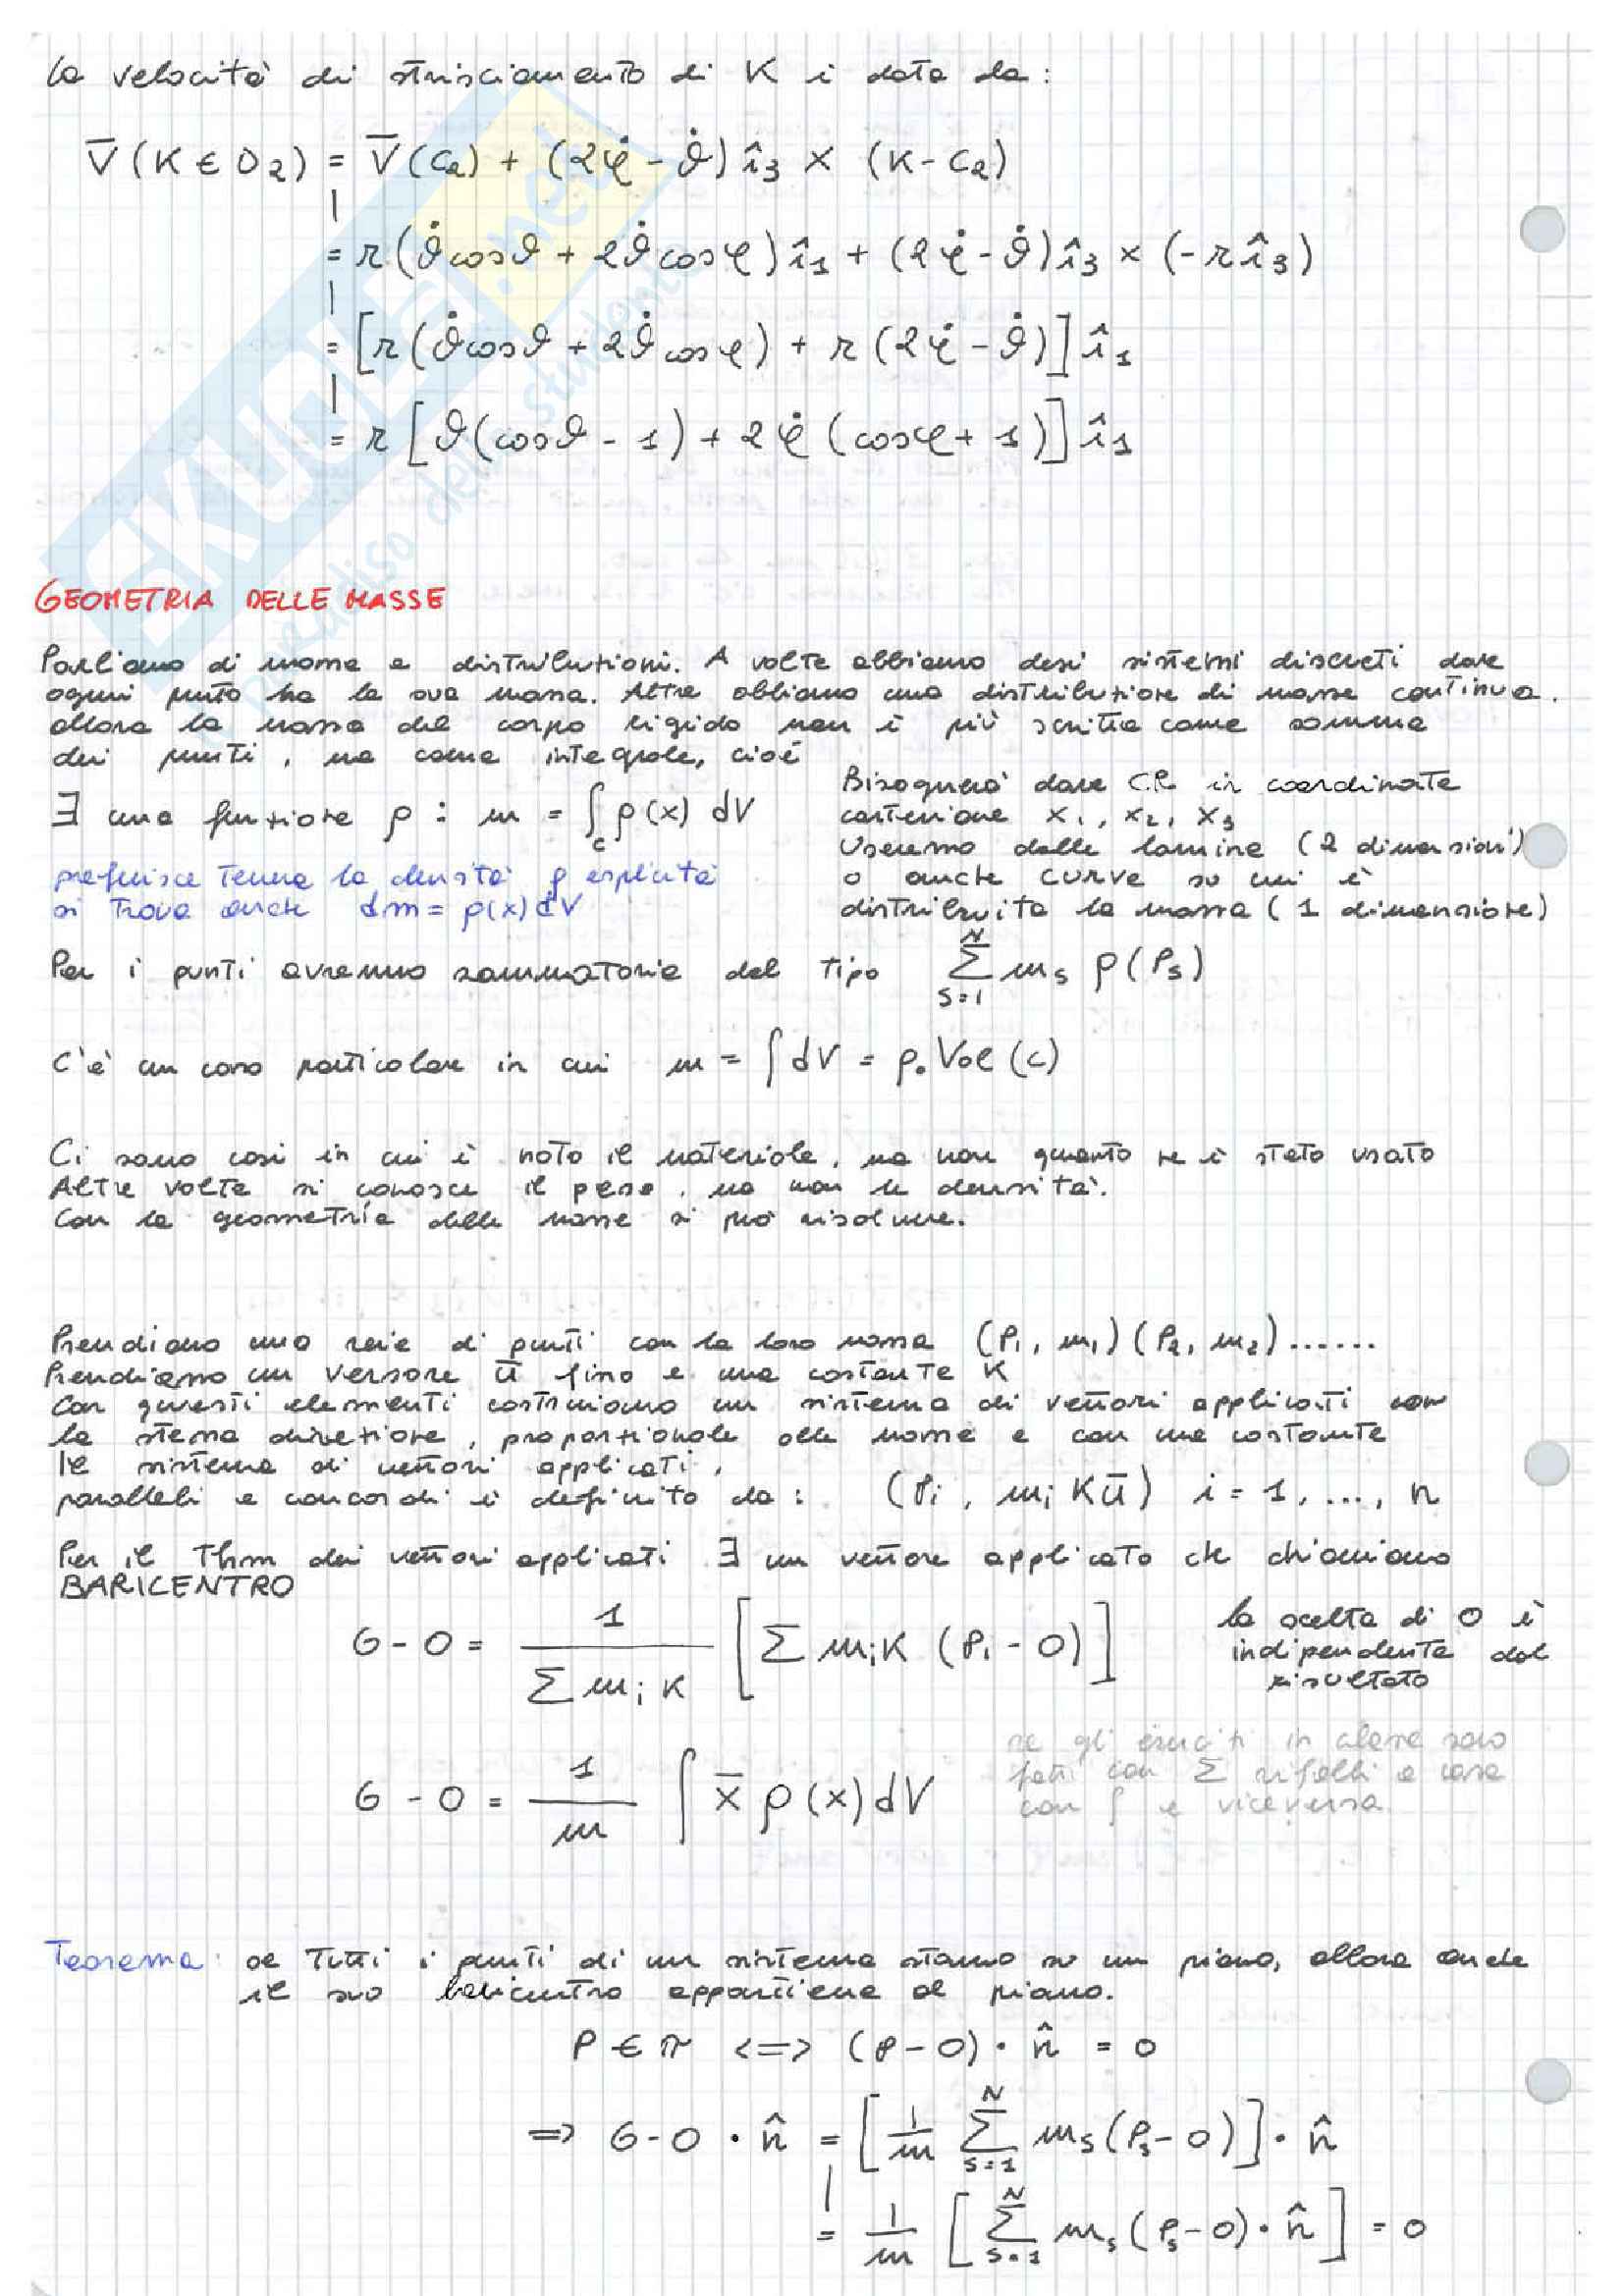 La velocità di strisciamento di K è data da:
V̄(K ∈ D₂) = V̄(C₂) + (2φ̇ - ϑ̇) î₃ × (K - C₂)
= r(ϑ̇cosϑ + 2ϑ̇cosφ) î₁ + (2φ̇ - ϑ̇) î₃ × (-r î₃)
= [r(ϑ̇cosϑ + 2ϑ̇cosφ) + r(2φ̇ - ϑ̇)] î₁
= r[ϑ(cosϑ - 1) + 2φ̇(cosφ + 1)] î₁
SKUOLA.net
paradiso dello studente
GEOMETRIA DELLE MASSE
Parliamo di masse e distribuzioni. A volte abbiamo dei sistemi discreti dove
ogni punto ha la sua massa. Altre abbiamo una distribuzione di masse continua.
allora la massa del corpo rigido non è più scritta come somma
dei punti, ma come integrale, cioè
∃ una funzione ρ : m = ∫_c ρ(x) dV
preferisce tenere la densità ρ esplicita
si trova anche dm = ρ(x) dV
Bisognerà dare in coordinate
cartesiane x₁, x₂, x₃
Useremo delle lamine (2 dimensioni)
o anche curve su cui è
distribuita la massa (1 dimensione)
Per i punti avremmo sommatorie del tipo ∑_{s=1}^{N} m_s ρ(P_s)
C'è un caso particolare in cui m = ∫ dV = ρ₀ Vol(c)
Ci sono casi in cui è noto il materiale, ma non quanto ne è stato usato
Altre volte si conosce il peso, ma non la densità.
Con la geometria delle masse si può risolvere.
Prendiamo una serie di punti con la loro massa (P₁, m₁) (P₂, m₂)......
Prendiamo un versore ū fisso e una costante K
Con questi elementi costruiamo un sistema di vettori applicati con
la stessa direzione, proporzionale alle masse e con una costante
Il sistema di vettori applicati,
paralleli e concordi è definito da: (P_i, m_i K ū) i = 1, ..., n
Per il Thm dei vettori applicati ∃ un vettore applicato che chiamiamo
BARICENTRO
G - O = 1/(∑ m_i K) [∑ m_i K (P_i - O)]
la scelta di O è
indipendente dal
risultato
G - O = 1/m ∫ x̄ ρ(x) dV
se gli esercizi in classe sono
fatti con ∑ rifalli a casa
con ∫ e viceversa.
Teorema: se tutti i punti di un sistema stanno su un piano, allora anche
il suo baricentro appartiene al piano.
P ∈ π <=> (P - O) · n̂ = 0
=> G - O · n̂ = [1/m ∑_{s=1}^{N} m_s (P_s - O)] · n̂
= 1/m [∑_{s=1}^{N} m_s (P_s - O) · n̂] = 0